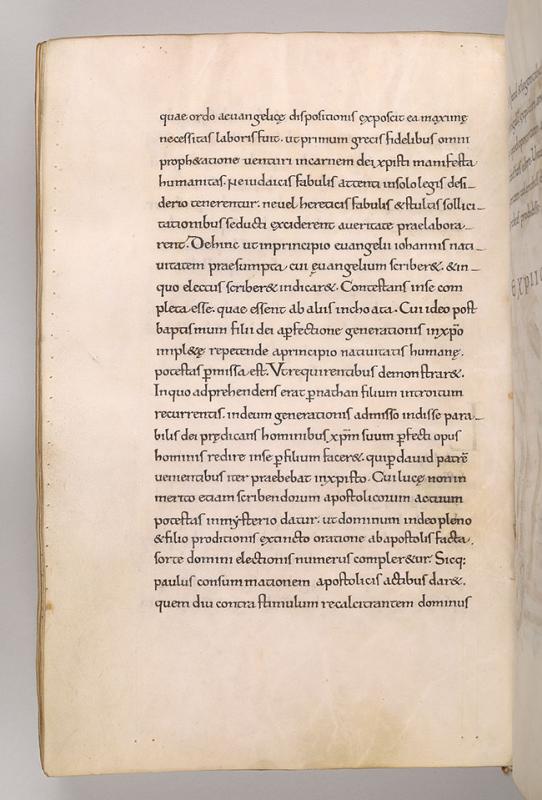 quae ordo aeuangelicę dispositionis exposcit ea maxime
necessitas laboris fuit. ut primum grecis fidelibus omni
proph&atione uenturi incarnem dei xpisti manifesta
humanitas. ne iudaicis fabulis attenti insolo legis desi-
derio tenerentur. neuel hereticis fabulis & stultis sollici-
tationibus seducti exciderent aueritate praelabora-
rent. Dehinc utinprincipio euangelii iohannis nati-
uitatem praesumpta, cui euangelium scriber&, &in-
quo electus scriber& indicar&. Contestans inse com
pleta esse. quae essent ab aliis inchoata. Cui ideo post
baptismum filii dei apfectione generationis inxpo
impl&ę repetende aprincipio natiuitatis humanę.
potestas pmissa est. Ut requirentibus demonstrar&.
In quo adprehendens erat pnathan filium introitum
recurrentis. indeum generationis admisso indisse para-
bilis dei prędicans hominibus xpm suum pfecti opus
hominis redire inse pfilium facer&. quip dauid patre
uenientibus iter praebebat inxpisto. Cui lucę non in
merito etiam scribendorum apostolicorum actuum
potestas inmysterio datur. ut dominum indeo pleno
&filio proditionis extincto oratione abapostolis facta.
sorte domini electionis numerus compler&ur. Sicq:
paulus consummationem apostolicis actibus dar&.
quem diu contra stimulum recalcitrantem dominus